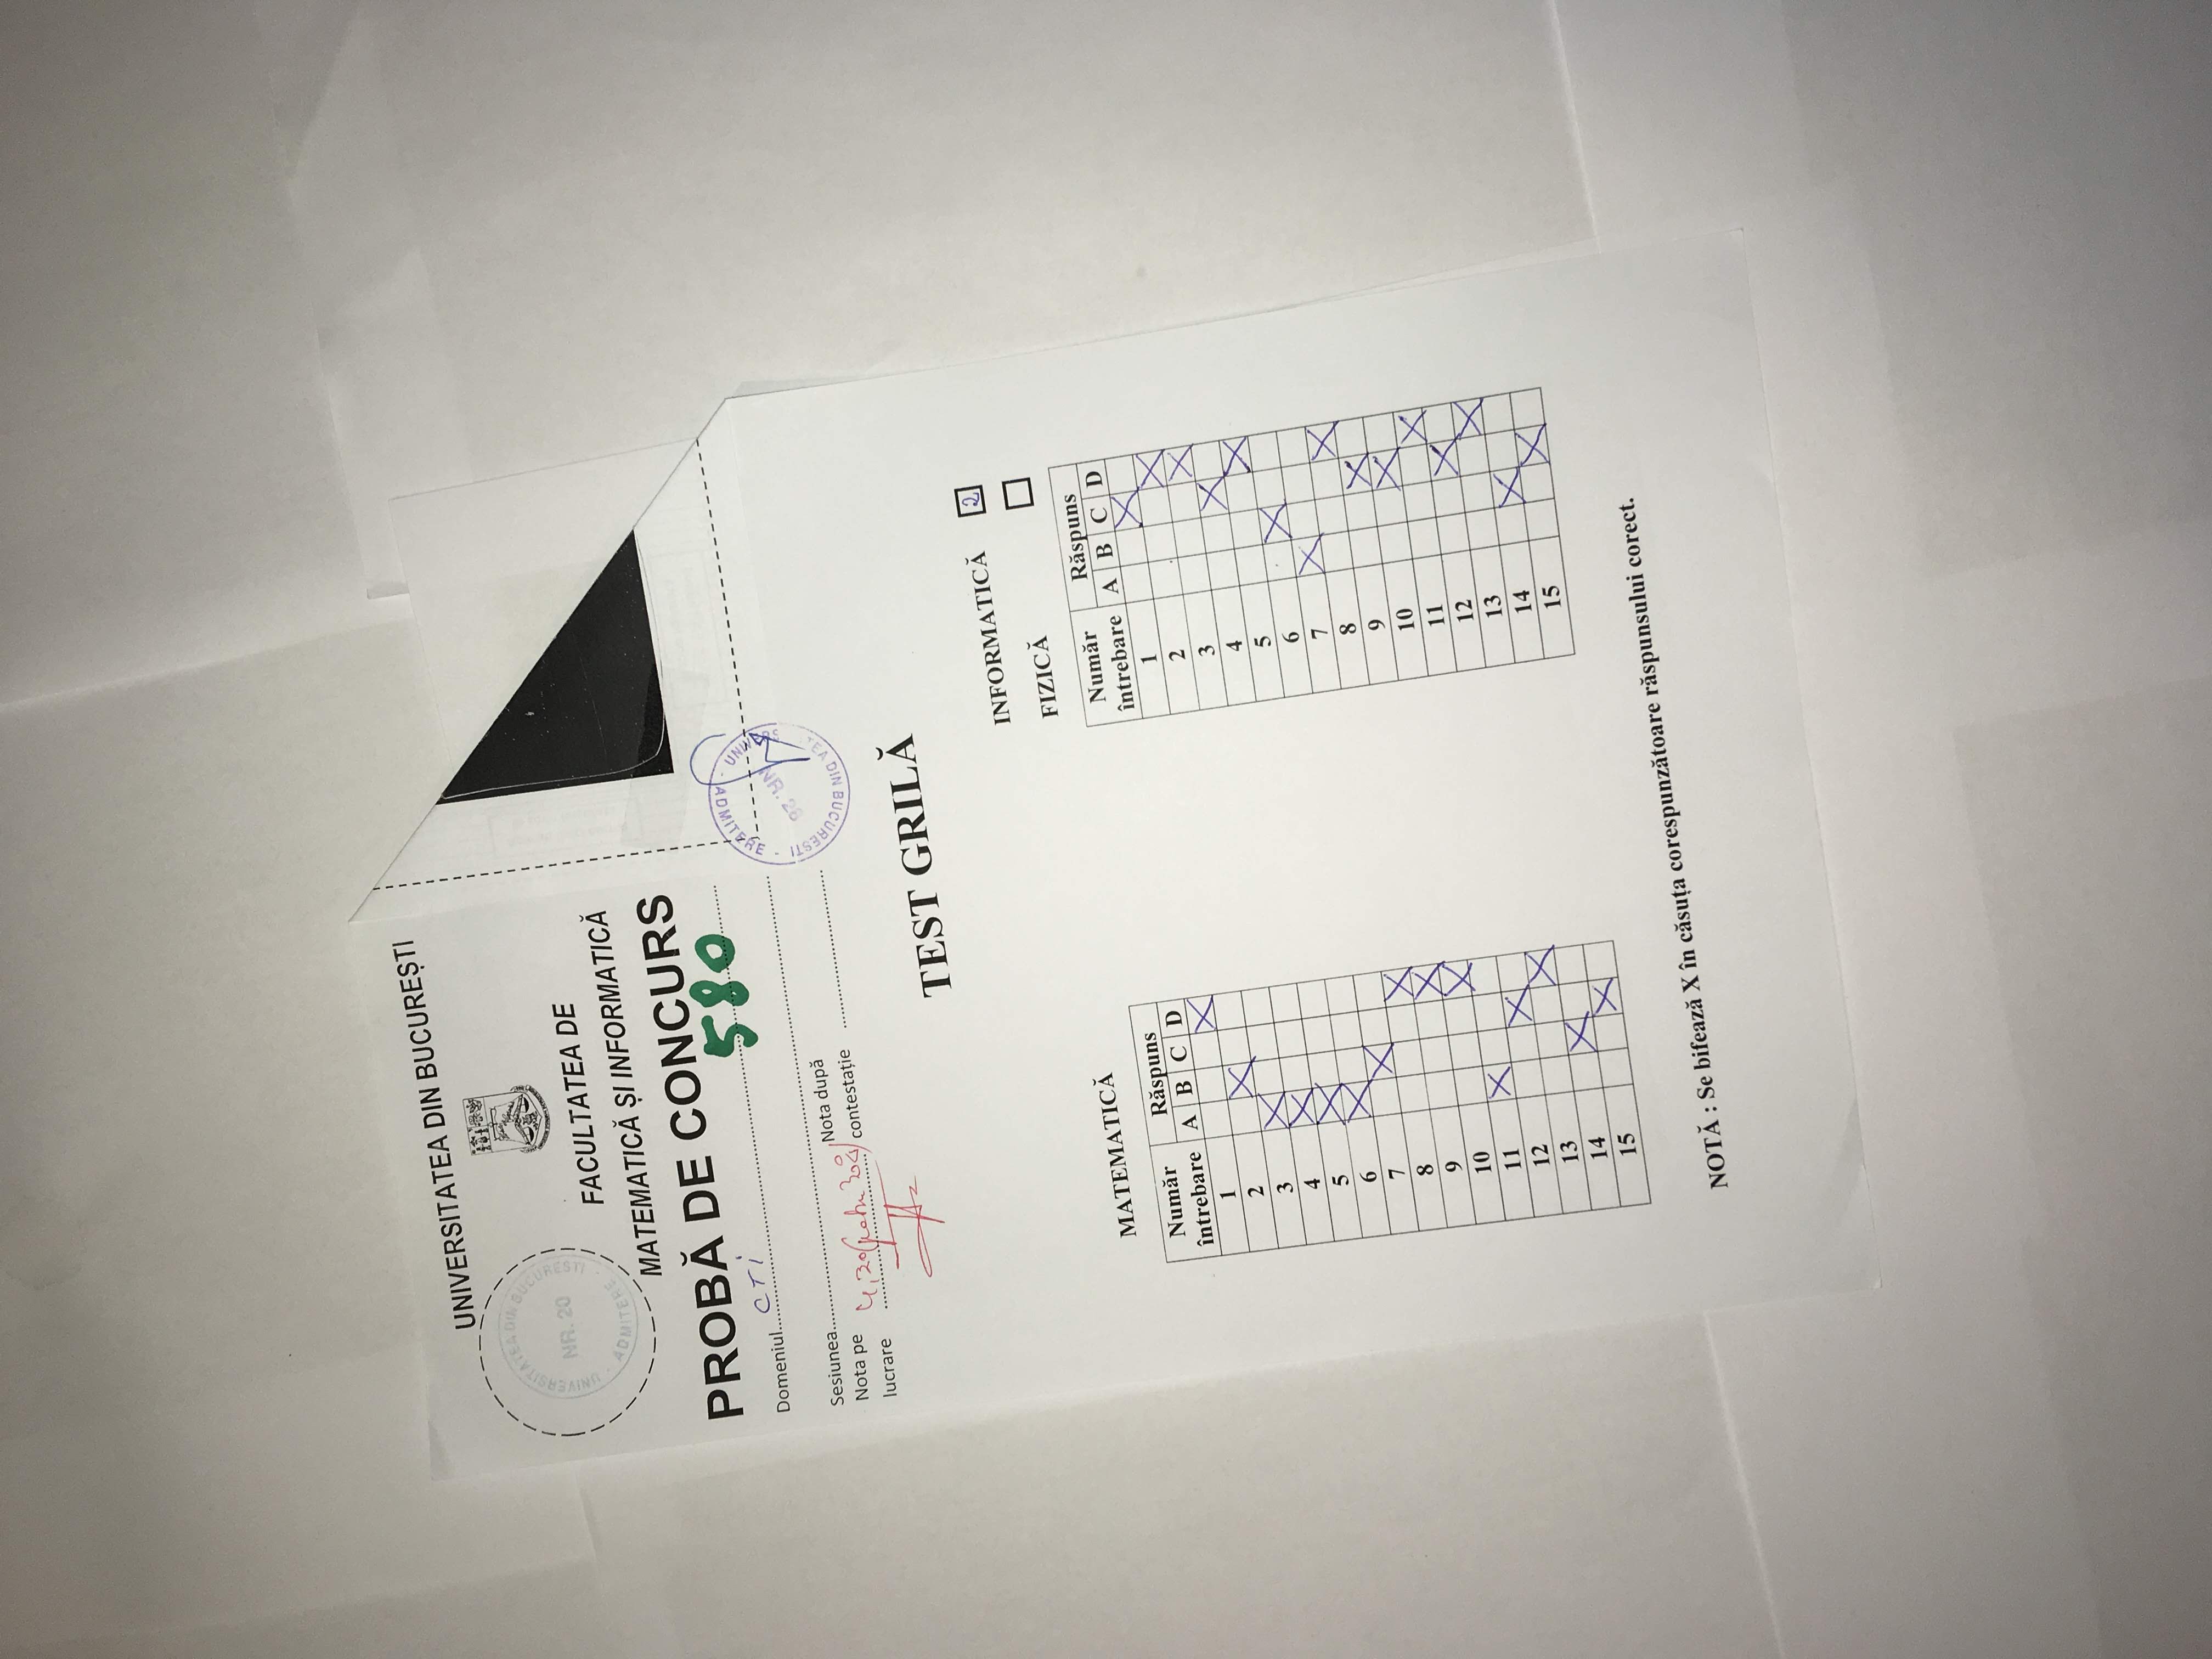 UNIVERSITATEA DIN BUCUREȘTI
UNIVERSITATEA DIN BUCURESTI
NR. 20
ADMITERE
FACULTATEA DE
MATEMATICĂ ȘI INFORMATICĂ
PROBĂ DE CONCURS
580
Domeniul CTI
Sesiunea
Nota pe lucrare 4,20
Nota după contestație
ADMITERE
NR. 28
DIN BUCURESTI
TEST GRILĂ
INFORMATICĂ 2
FIZICĂ
MATEMATICĂ
Număr întrebare Răspuns
A B C D
1 X
2 X
3 X
4 X
5 X
6 X
7 X
8 X
9 X
10 X
11 X
12 X
13 X
14 X
15 X
Număr întrebare Răspuns
A B C D
1 X
2 X
3 X
4 X
5 X
6 X
7 X
8 X
9 X
10 X
11 X
12 X
13 X
14 X
15 X
NOTĂ : Se bifează X în căsuța corespunzătoare răspunsului corect.